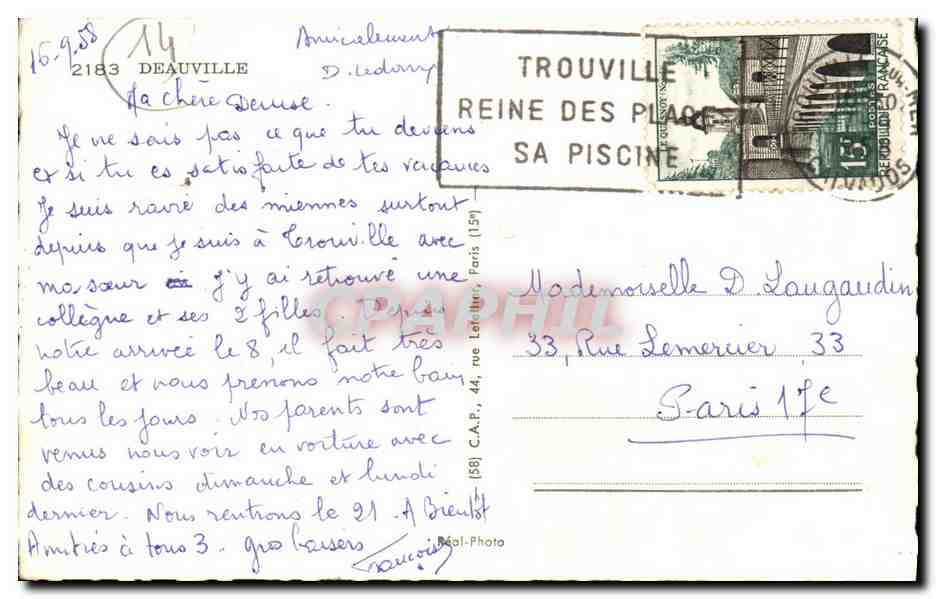 16-9-58
14
2183 DEAUVILLE
Amicalement
D. Ledorry
Ma chère Denise.
Je ne sais pas ce que tu deviens
et si tu es satisfaite de tes vacances
Je suis ravie des miennes surtout
depuis que je suis à Trouville avec
ma sœur J'y ai retrouvé une
collègue et ses 2 filles. Depuis
notre arrivée le 8, il fait très
beau et nous prenons notre bain
tous les jours. Nos parents sont
venus nous voir en voiture avec
des cousins dimanche et lundi
dernier. Nous rentrons le 21. A Bientôt
Amitiés à tous 3. gros baisers
TROUVILLE
REINE DES PLAGES
SA PISCINE
LE QUESNOY
15F
POSTES
REPUBLIQUE FRANÇAISE
Mademoiselle D. Laugaudin
33, Rue Lemercier 33
Paris 17e
(58) C.A.P., 44, rue Letellier, Paris (15e)
Réal-Photo
CPAPHIL